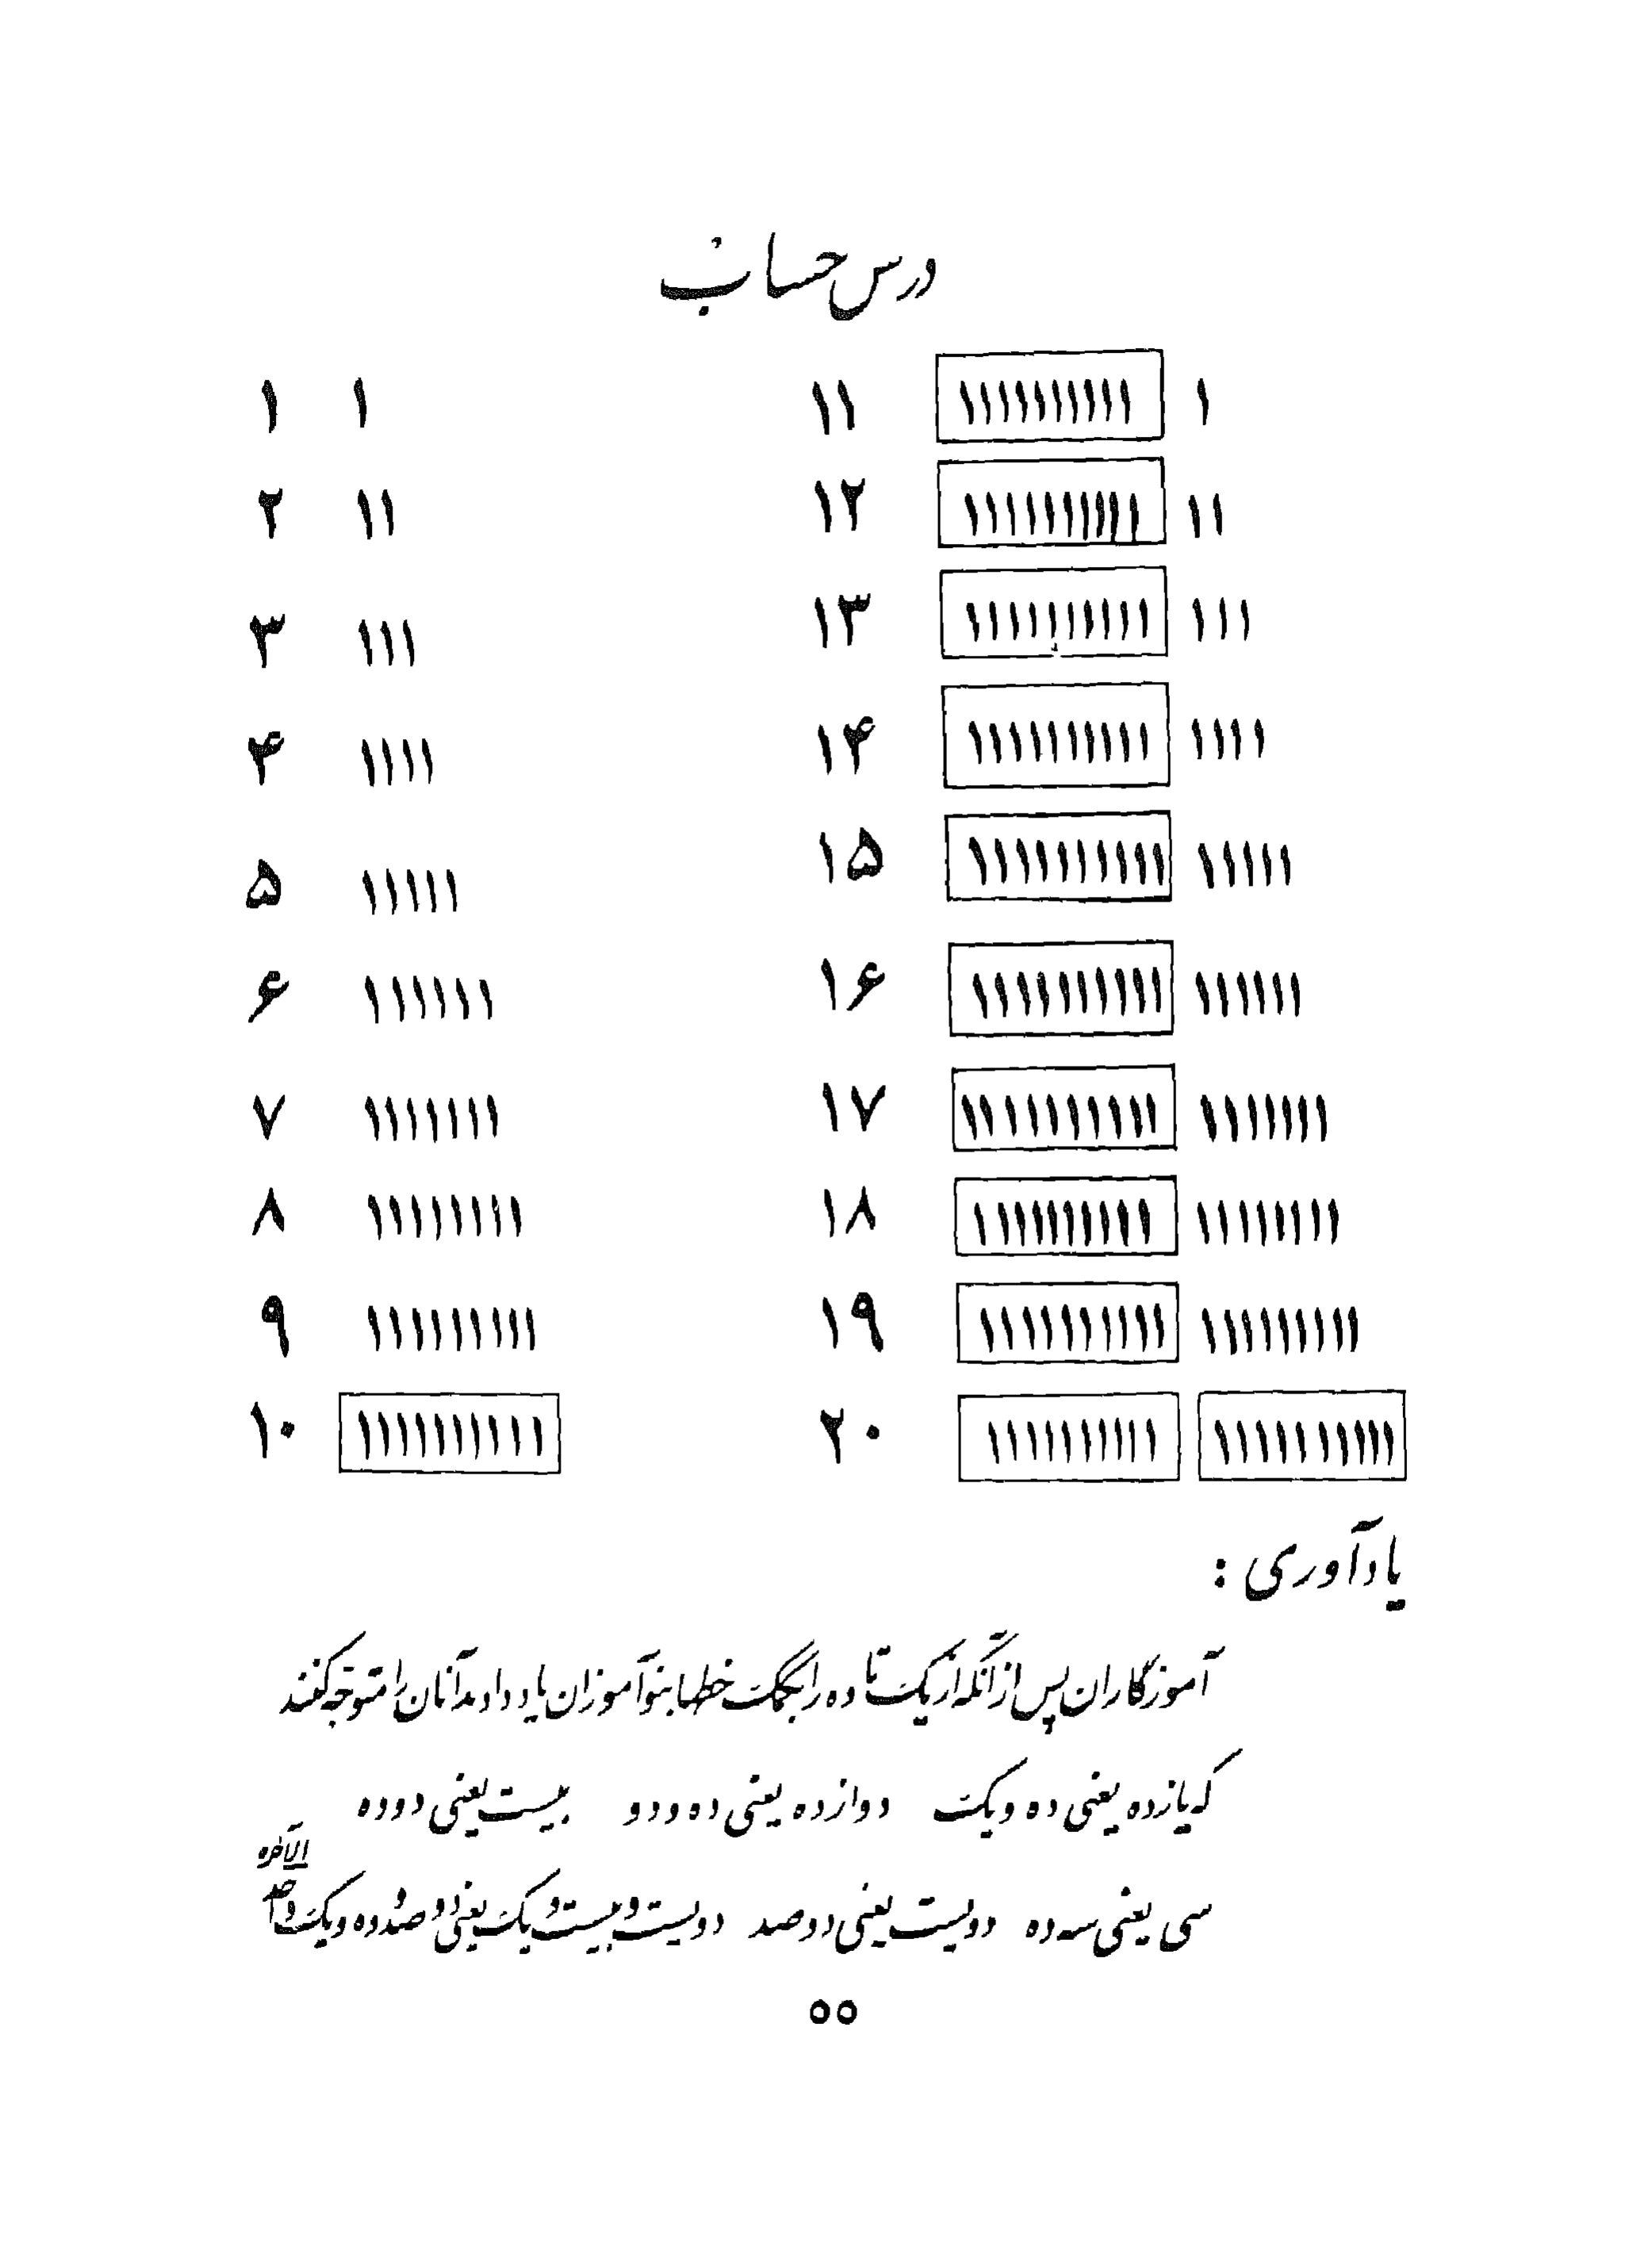 درس حساب
۱ ۱ ۱۱ ۱۱۱۱۱۱۱۱۱۱ ۱
۲ ۱۱ ۱۲ ۱۱۱۱۱۱۱۱۱۱ ۱۱
۳ ۱۱۱ ۱۳ ۱۱۱۱۱۱۱۱۱۱ ۱۱۱
۴ ۱۱۱۱ ۱۴ ۱۱۱۱۱۱۱۱۱۱ ۱۱۱۱
۵ ۱۱۱۱۱ ۱۵ ۱۱۱۱۱۱۱۱۱۱ ۱۱۱۱۱
۶ ۱۱۱۱۱۱ ۱۶ ۱۱۱۱۱۱۱۱۱۱ ۱۱۱۱۱۱
۷ ۱۱۱۱۱۱۱ ۱۷ ۱۱۱۱۱۱۱۱۱۱ ۱۱۱۱۱۱۱
۸ ۱۱۱۱۱۱۱۱ ۱۸ ۱۱۱۱۱۱۱۱۱۱ ۱۱۱۱۱۱۱۱
۹ ۱۱۱۱۱۱۱۱۱ ۱۹ ۱۱۱۱۱۱۱۱۱۱ ۱۱۱۱۱۱۱۱۱
۱۰ ۱۱۱۱۱۱۱۱۱۱ ۲۰ ۱۱۱۱۱۱۱۱۱۱ ۱۱۱۱۱۱۱۱۱۱
یادآوری :
آموزگاران پس از آنکه از یک تا ده را بکمک خطها بنوآموزان یاد دادند آنان را متوجه کنند
که یازده یعنی ده و یک دوازده یعنی ده و دو بیست یعنی دو ده
سی یعنی سه ده دویست یعنی دو صد دویست و بیست و یک یعنی دو صد و دو ده و یک واحد الی آخره
۵۵